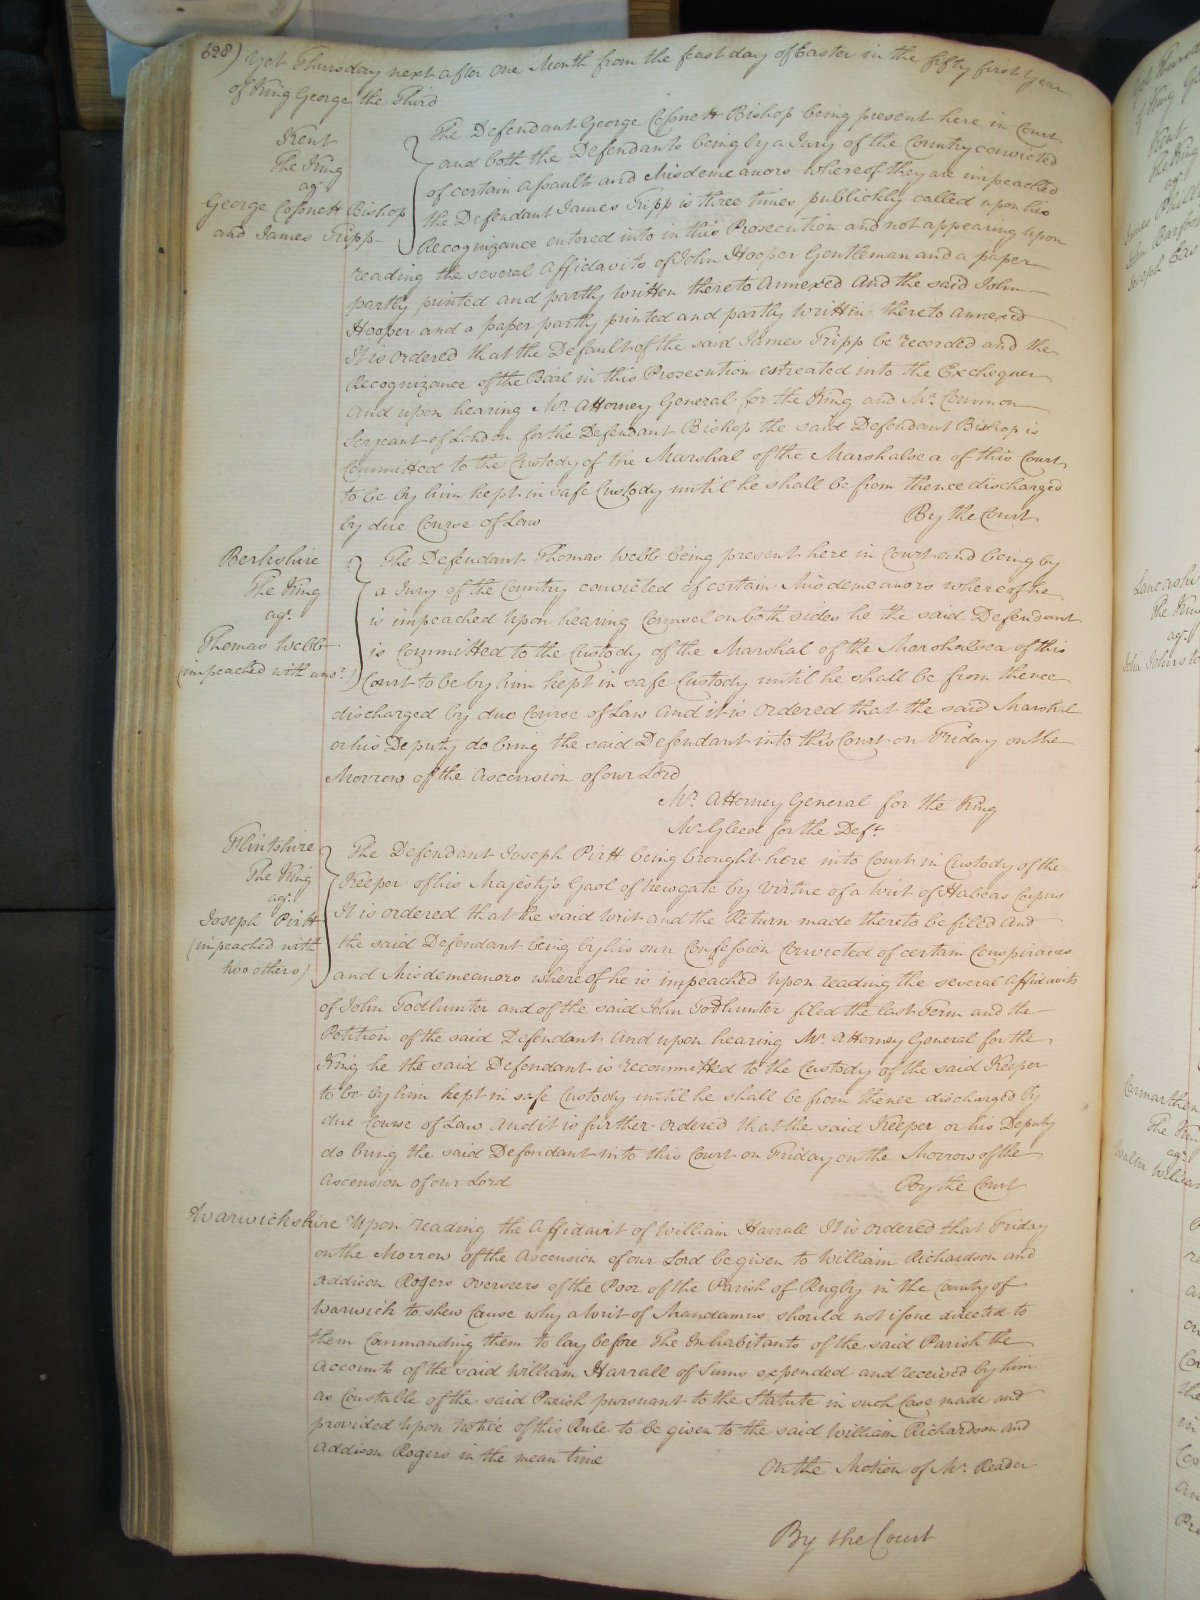 628) Yet Thursday next after one Month from the feast day of Easter in the fifty first year
of King George the Third
Kent
The King
agt.
George Cossnett Bishop
and James Tripp
The Defendant George Cossnett Bishop being present here in Court
and both the Defendants being by a Jury of the Country convicted
of certain Assaults and Misdemeanors whereof they are impeached
the Defendant James Tripp is three times publickly called upon his
Recognizance entered into in this Prosecution and not appearing Upon
reading the several Affidavits of John Hooper Gentleman and a paper
partly printed and partly written thereto annexed And the said John
Hooper and a paper partly printed and partly written thereto annexed
It is ordered that the Default of the said James Tripp be recorded and the
Recognizance of the Bail in this Prosecution estreated into the Exchequer
And upon hearing Mr. Attorney General for the King and Mr. Common
Serjeant of London for the Defendant Bishop the said Defendant Bishop is
Committed to the Custody of the Marshal of the Marshalsea of this Court
to be by him kept in safe Custody until he shall be from thence discharged
by due Course of Law By the Court
Berkshire
The King
agt.
Thomas Webb
(impeached with anor.)
The Defendant Thomas Webb being present here in Court and being by
a Jury of the Country convicted of certain Misdemeanors whereof he
is impeached Upon hearing Counsel on both sides he the said Defendant
is Committed to the Custody of the Marshal of the Marshalsea of this
Court to be by him kept in safe Custody until he shall be from thence
discharged by due Course of Law And it is ordered that the said Marshal
or his Deputy do bring the said Defendant into this Court on Friday on the
Morrow of the Ascension of our Lord
Mr. Attorney General for the King
Mr. Gleed for the Deft.
Flintshire
The King
agt.
Joseph Pirtt
(impeached with
two others)
The Defendant Joseph Pirtt being brought here into Court in Custody of the
Keeper of his Majesty's Gaol of Newgate by virtue of a Writ of Habeas Corpus
It is ordered that the said Writ and the Return made thereto be filed And
the said Defendant being by his own Confession Convicted of certain Conspiracies
and Misdemeanors whereof he is impeached Upon reading the several Affidavits
of John Todhunter and of the said John Todhunter filed the last Term and the
Petition of the said Defendant And upon hearing Mr. Attorney General for the
King he the said Defendant is recommitted to the Custody of the said Keeper
to be by him kept in safe Custody until he shall be from thence discharged by
due Course of Law And it is further ordered that the said Keeper or his Deputy
do bring the said Defendant into this Court on Friday on the Morrow of the
Ascension of our Lord By the Court
Warwickshire Upon reading the Affidavit of William Harrall It is ordered that Friday
on the Morrow of the Ascension of our Lord be given to William Richardson and
Addison Rogers overseers of the Poor of the Parish of Rugby in the County of
Warwick to shew Cause why a Writ of Mandamus should not issue directed to
them Commanding them to lay before the Inhabitants of the said Parish the
Accounts of the said William Harrall of Sums expended and received by him
as Constable of the said Parish pursuant to the Statute in such Case made and
provided Upon Notice of this Rule to be given to the said William Richardson and
Addison Rogers in the mean time
On the Motion of Mr. Reader
By the Court